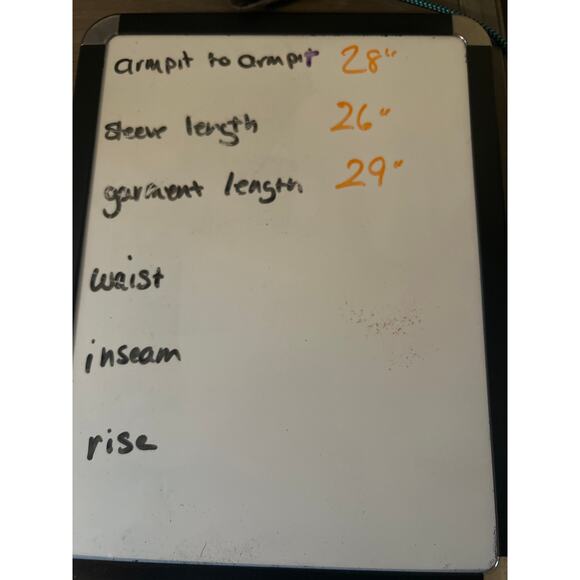 armpit to armpit 28"
sleeve length 26"
garment length 29"
waist
inseam
rise